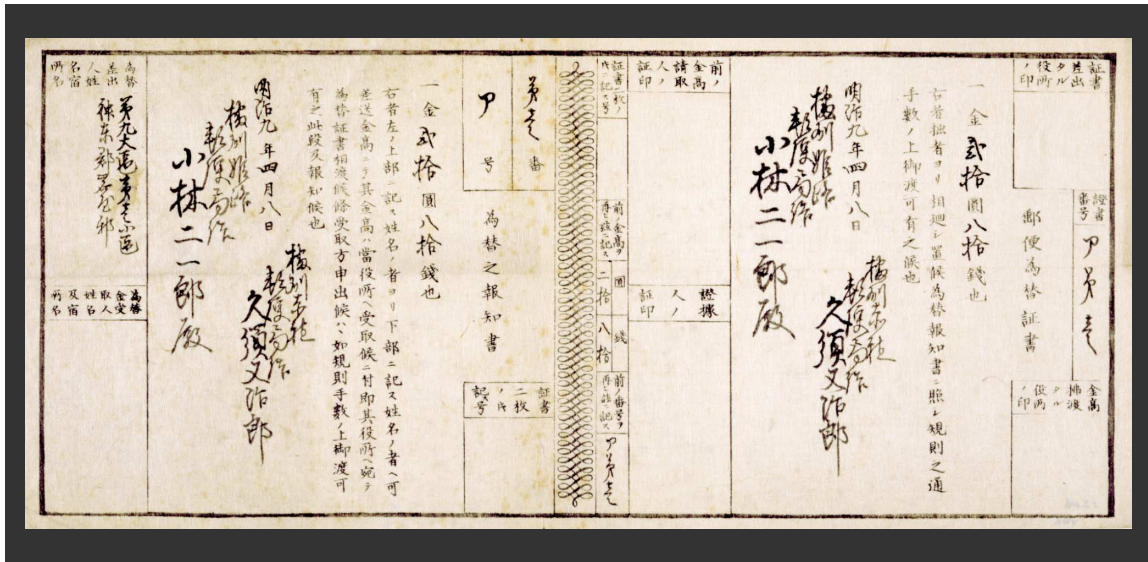 証書
差出
タル
役所
ノ印
證書
番号
ア第壱
金高
拂渡
タル
役所
ノ印
郵便為替証書
一金弐拾圓八拾錢也
右者拙者ヨリ相廻シ置候為替報知書ニ照シ規則之通
手数ノ上御渡可有之候也
明治九年四月八日
播州姫路
郵便局ニ而
小林二一郎殿
久須又治郎
前ノ
金高
請取
人ノ
証印
證據
人ノ
証印
証書二枚ノ
氏ニ記ス号
前ノ金高ヲ
再ヒ茲ニ記ス
圓
二拾
錢
八拾
前ノ番号ヲ
再ヒ茲ニ記ス
ア第壱
第壱番
ア号
為替之報知書
証書
二枚
ノ氏
記号
一金弐拾圓八拾錢也
右者左ノ上部ニ記ス姓名ノ者ヨリ下部ニ記ス姓名ノ者ヘ可
差送金高ニテ其金高ハ當役所ヘ受取候ニ付即其役所ヘ宛テ
為替証書相渡候條受取方申出候ハヽ如規則手数ノ上御渡可
有之此段及報知候也
明治九年四月八日
播州姫路
小林二一郎殿
久須又治郎
為替
差出
人姓
名宿
所名
第九大區第壱小區
為替
金受
取人
姓名
及宿
所名